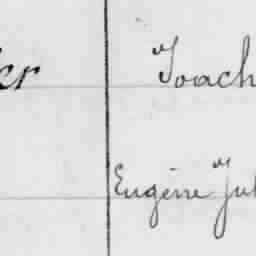 er Joach
Eugène Jul